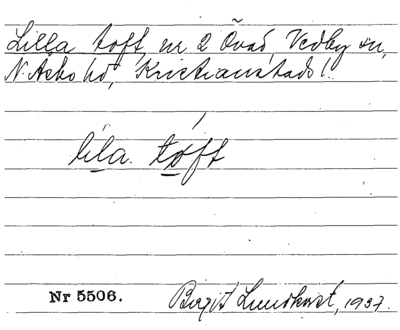 Lilla toft nr 2 Övad, Vedby sn,
N. Åsbo hd, Kristianstads l.
lila toft
Nr 5506. Birgit Lundkvist, 1937.